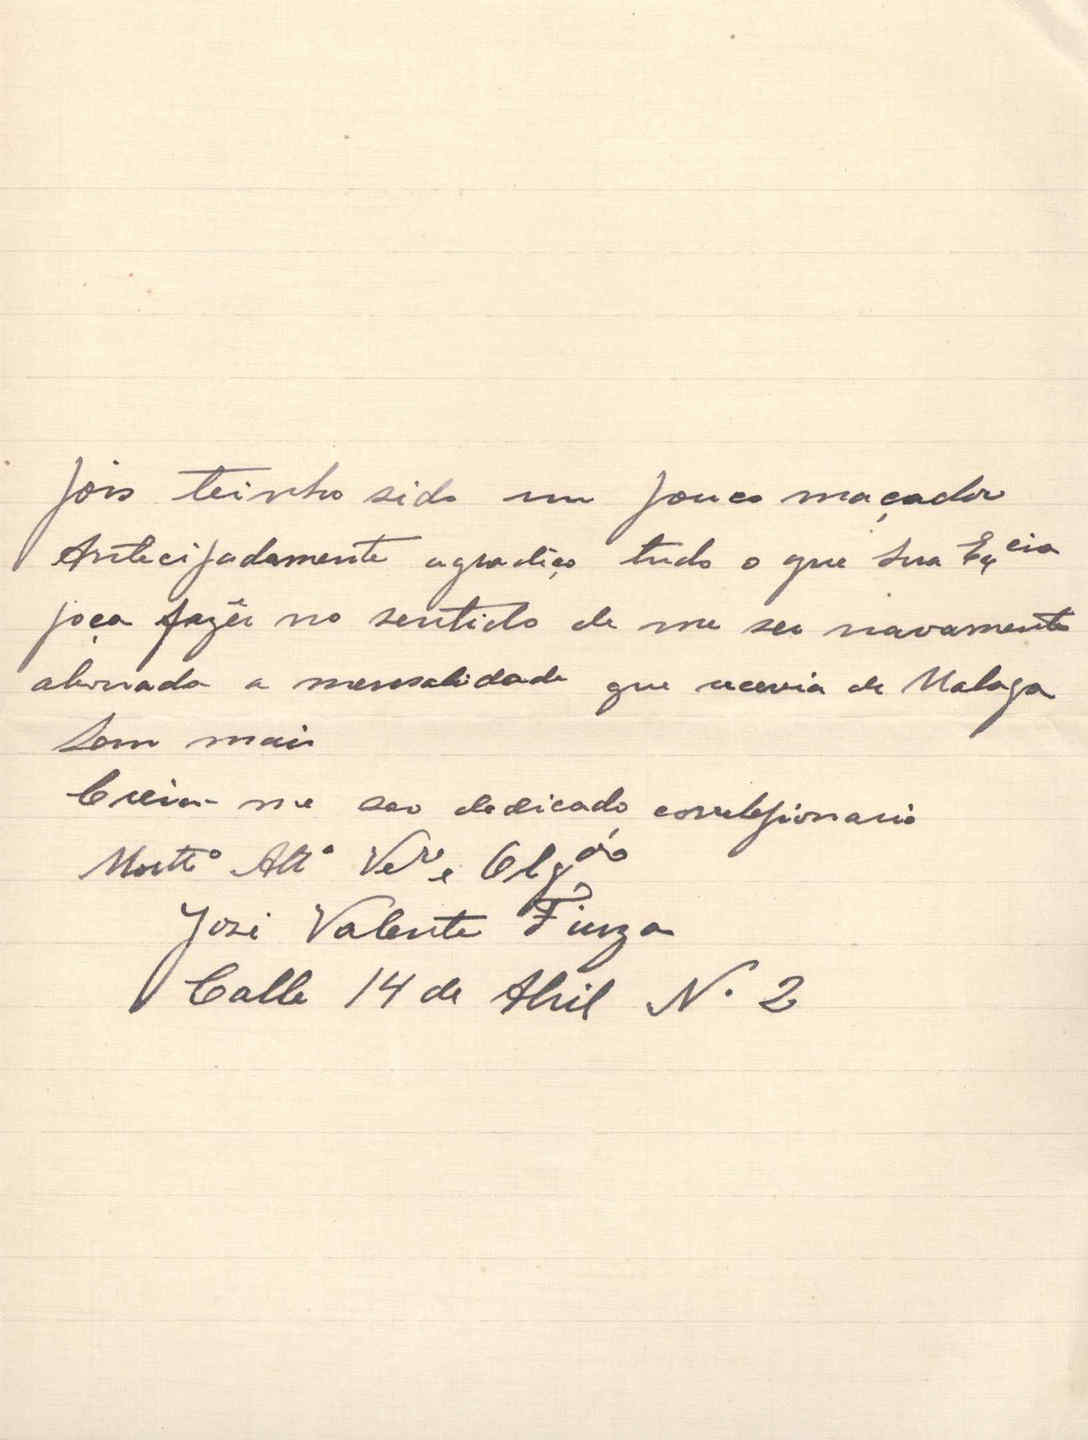 pois teinho sido um pouco maçador
Antecipadamente agradeço tudo o que Sua Excia
poça fazêr no sentido de me ser navamente
abonada a mensalidade que recevia de Malaga
Sem mais
Creia-me seo dedicado correlegionario
Mortto Atto Vedor e Obgdo
José Valente Fiuza
Calle 14 de Abril N. 2